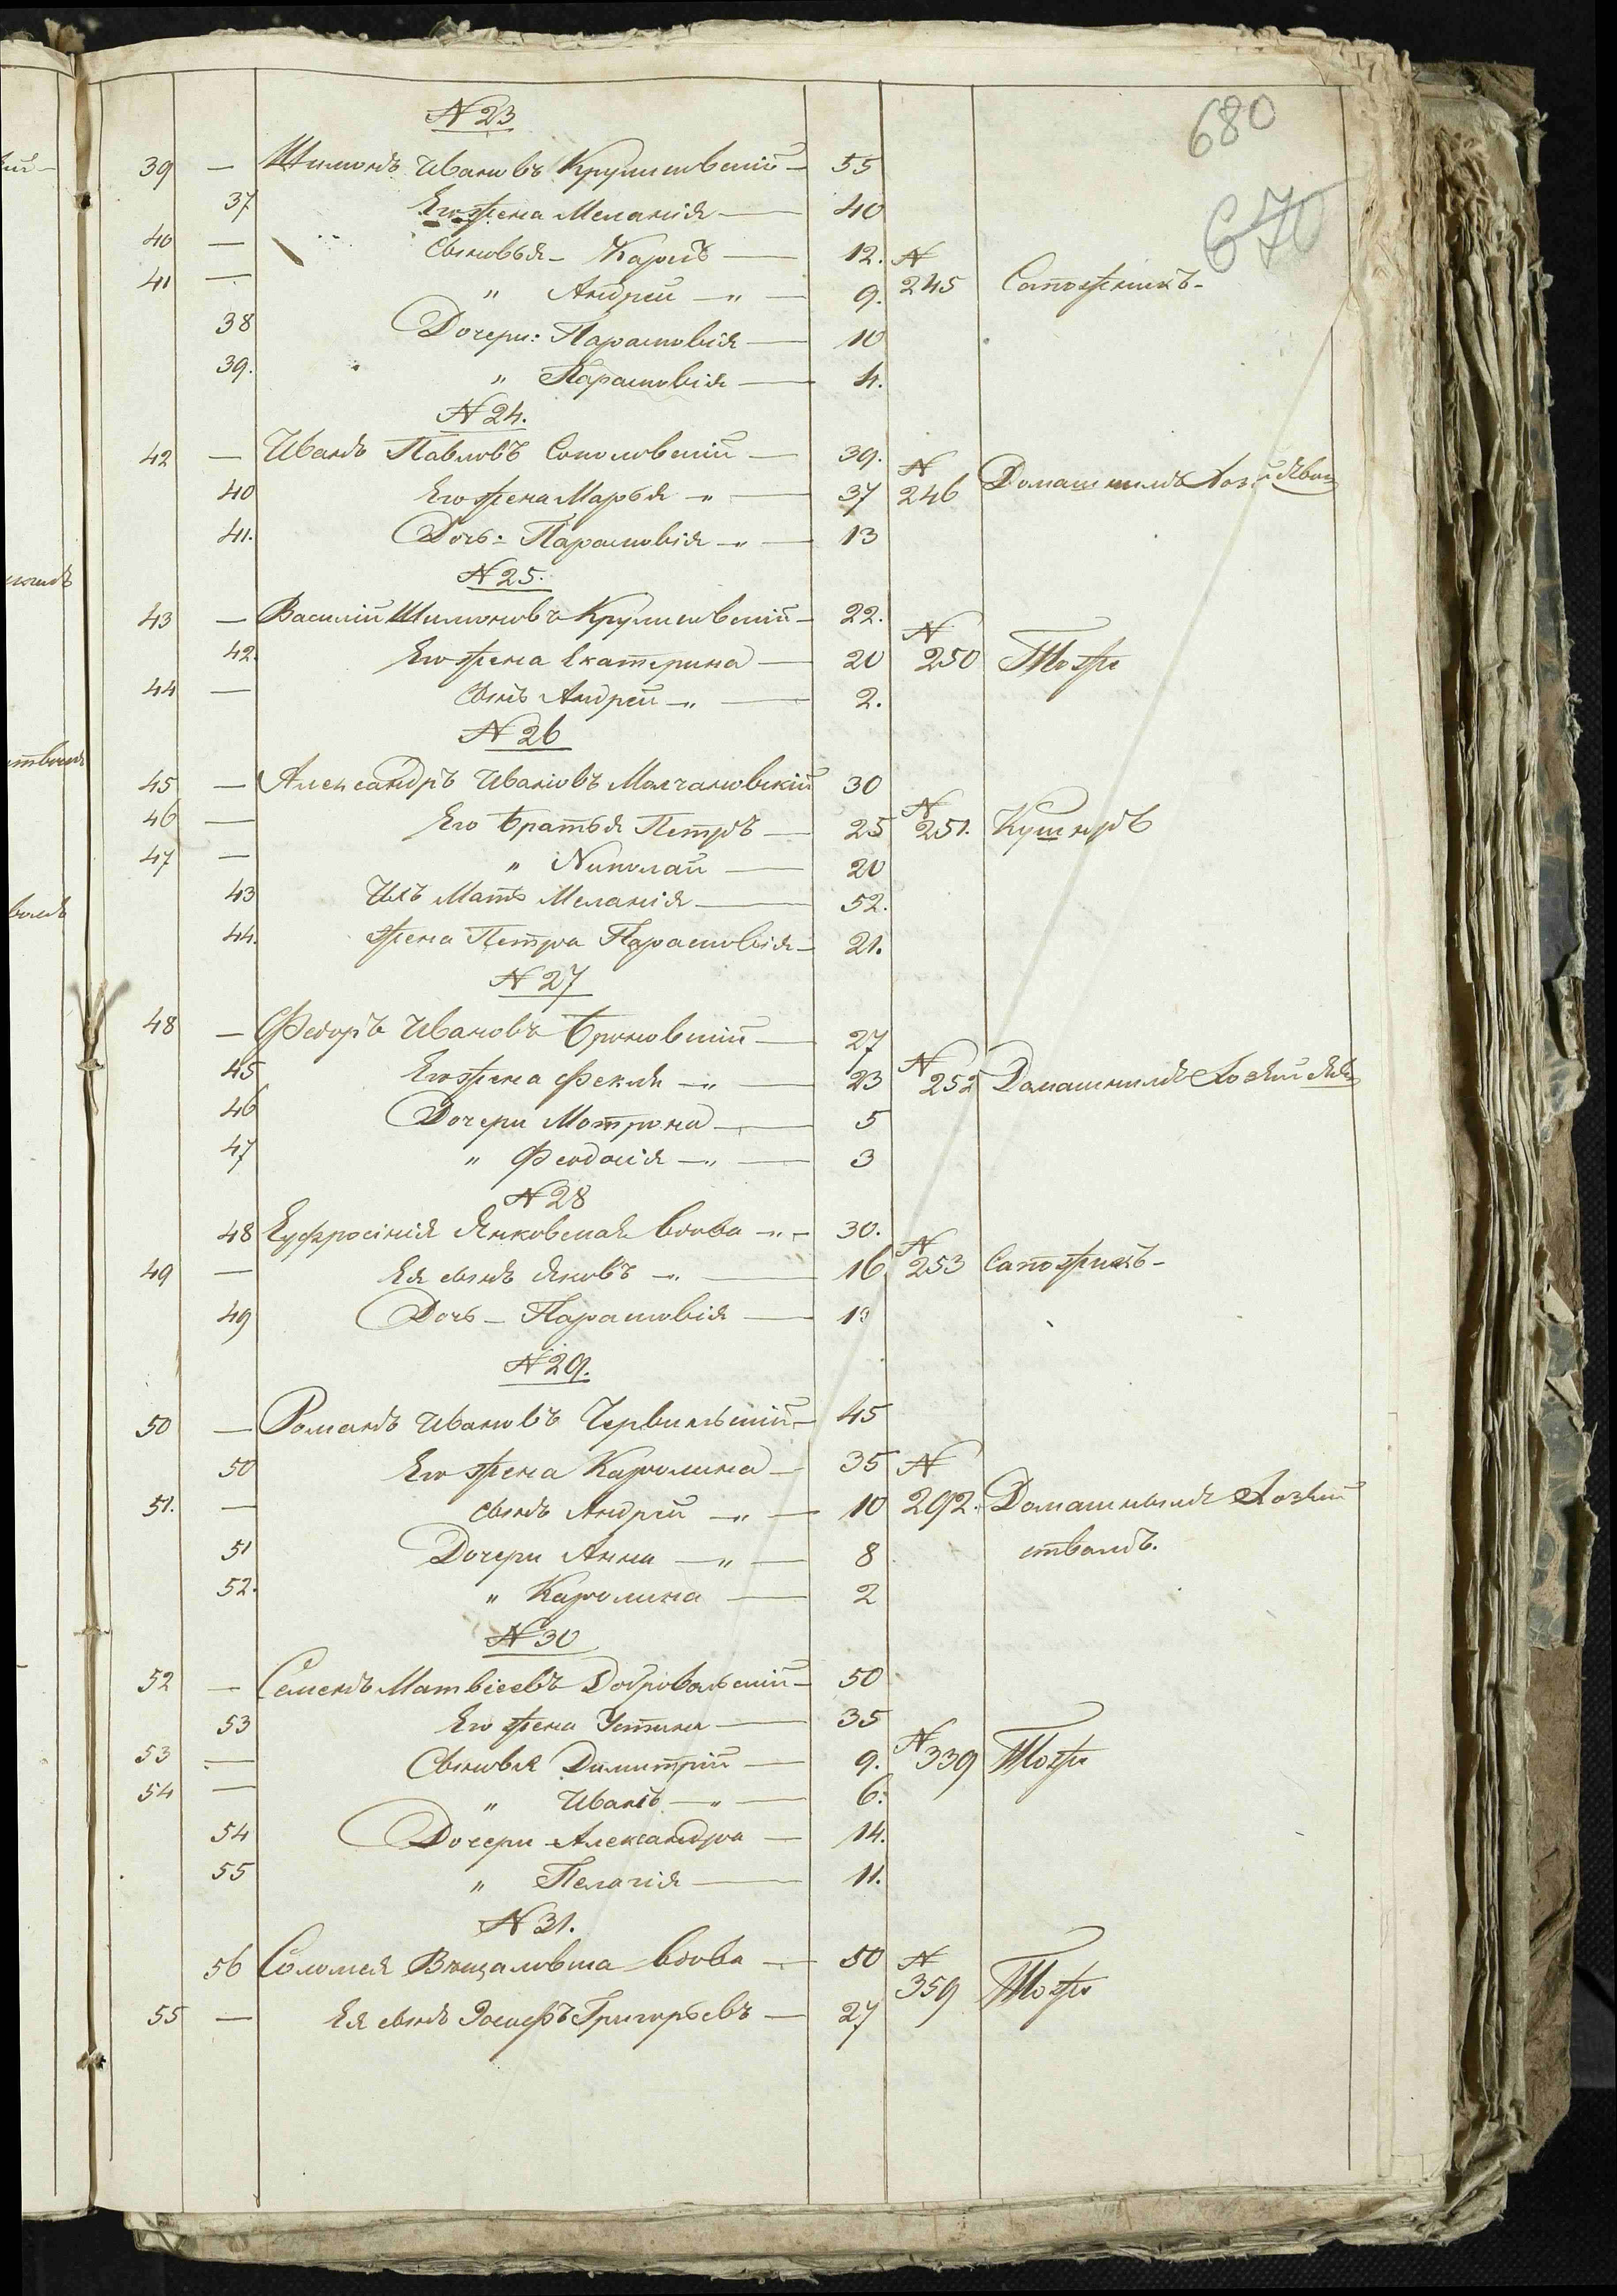 680
670
N 23
39 — Шимонъ Ивановъ Крулиновскій — 55
37 Его жена Меланія — 40
40 — Сыновья – Карпъ — 12. N
41 — " Андрей — " — 9. 245 Сапожникъ -
38 Дочери: Парасковія — 10
39. " Парасковія — 4.
N 24.
42 — Иванъ Павловъ Соколовскій — 39. N
40 Его жена Марья — " — 37 246 Домашнимъ
41. Дочь: Парасковія — " — 13
N 25.
43 — Василій Шимоновъ Крулиновскій — 22. N
42. Его жена Екатерина — 20 250 Тоже
44 — Сынъ Андрей — " — 2.
N 26
45 — Александръ Ивановъ Молчановскій 30 N
46 — Его братья Петръ — 25 251. Кушнеръ
47 — " Николай — 20
43 Ихъ Мать Меланія — 52.
44. жена Петра Парасковія — 21.
N 27
48 — Федоръ Ивановъ Броновскій — 27 N
45 Его жена Фекля — " — 23 252 Домашнимъ
46 Дочери Мотрона — " — 5
47 " Феодосія — " — 3
N 28
48 Еуфросинія Янковская вдова — " — 30. N
49 — Ея сынъ Яковъ — " — 16 253 Сапожникъ -
49 Дочь – Парасковія — 13
N 29.
50 — Романъ Ивановъ Червинскій — 45
50 Его жена Каролина — 35 N
51. — сынъ Андрей — " — 10 292. Домашнымъ Хозяй
51 Дочери Анна — " — 8 ствомъ.
52. " Каролина — 2
N 30
52 — Семенъ Матвіевъ Добровольскій — 50
53 Его жена Устина — 35 N
53 — Сыновья Димитрій — 9. 339 Тоже
54 — " Иванъ — " — 6.
54 Дочери Александра — 14.
55 " Пелагія — 11.
N 31.
56 Соломея вдова — 50 N
55 — Ея сынъ Іосифъ Григорьевъ — 27 359 Тоже